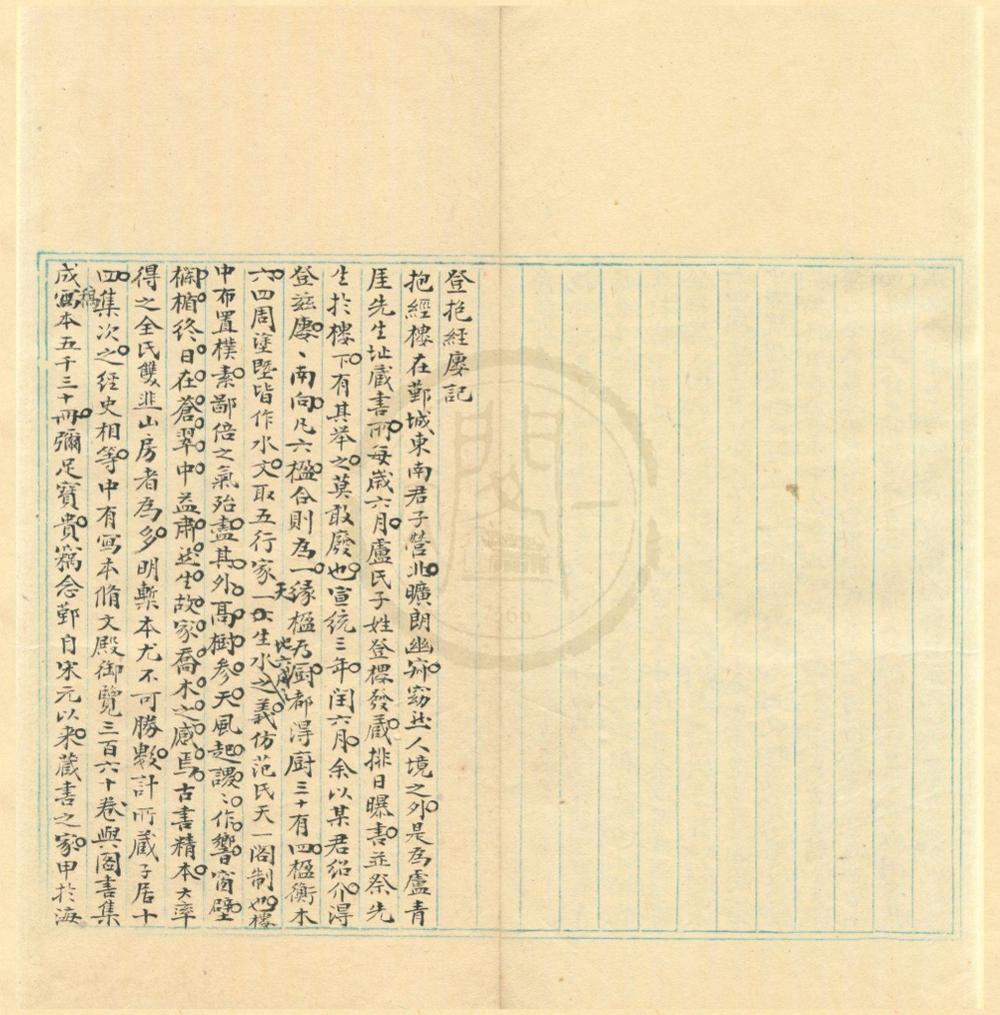 登抱經廔記
抱經樓在鄞城東南君子營北曠朗幽窈窈然人境之外是為盧青
厓先生址藏書所每歲六月盧氏子姓登樓發藏排日曝書並祭先
生於樓下有其举之莫敢廢也宣統三年閏六月余以某君紹介得
登茲廔、南向凡六楹合則為一緣楹乃厨都得厨三十有四楹衡木
六四周塗塈皆作水文取五行家天一生水地六成之之義仿范氏天一閣制也樓
中布置樸素鄙倍之氣殆盡其外高樹参天風起謖、作響窗壁
櫚楯終日在蒼翠中益肅然生故家喬木之感焉古書精本大率
得之全氏雙韭山房者為多明槧本尤不可勝數計所藏子居十
四集次之經史相等中有寫本脩文殿御覽三百六十卷與圖書集
成稿寫本五千三十冊彌足寶貴竊念鄞自宋元以来藏書之家甲於海